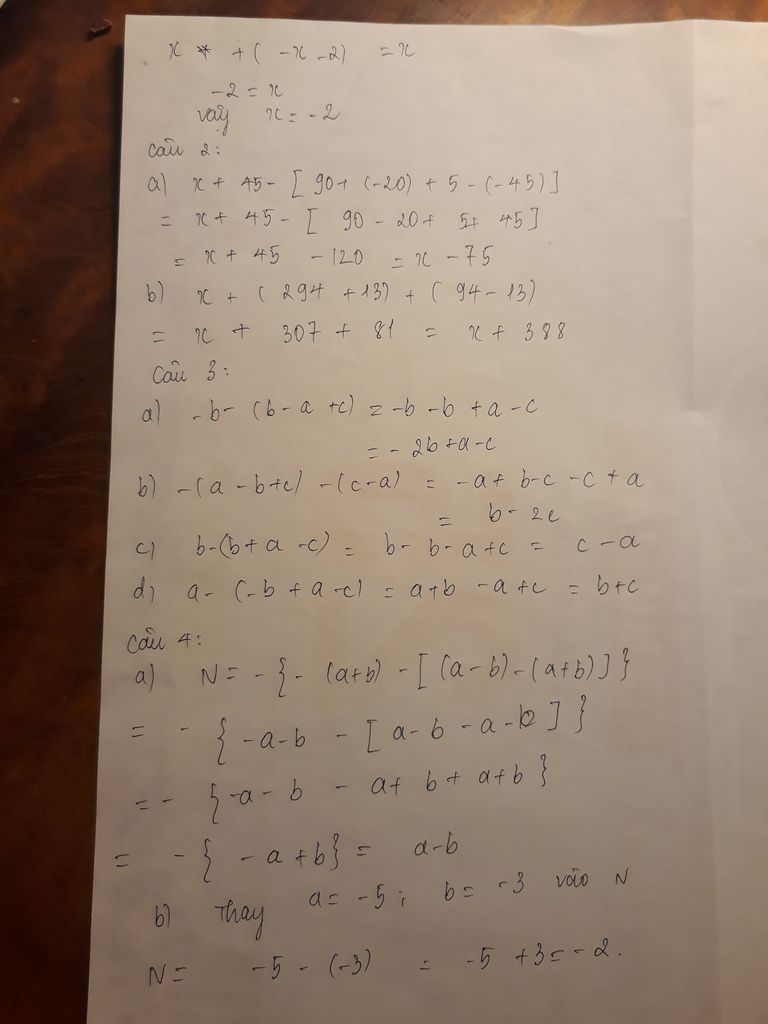 x + (-x-2) = x
-2 = x
vậy x = -2
Câu 2:
a) x + 45 - [90 + (-20) + 5 - (-45)]
= x + 45 - [90 - 20 + 5 + 45]
= x + 45 - 120 = x - 75
b) x + (294 + 13) + (94 - 13)
= x + 307 + 81 = x + 388
Câu 3:
a) -b - (b - a + c) = -b - b + a - c
= -2b + a - c
b) -(a - b + c) - (c - a) = -a + b - c - c + a
= b - 2c
c) b - (b + a - c) = b - b - a + c = c - a
d) a - (-b + a - c) = a + b - a + c = b + c
Câu 4:
a) N = -{-(a+b) - [(a-b) - (a+b)]}
= -{-a-b - [a-b-a-b]}
= -{-a-b-a+b+a+b}
= -{-a+b} = a-b
b) Thay a = -5; b = -3 vào N
N = -5 - (-3) = -5 + 3 = -2.